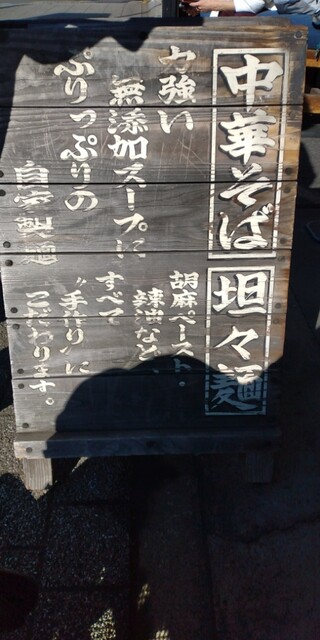 中華そば
坦々麺
力強い
無添加スープに
ぷりっぷりの
自家製麺
胡麻ペースト・
辣油など、
すべて
“手作り”に
こだわります。